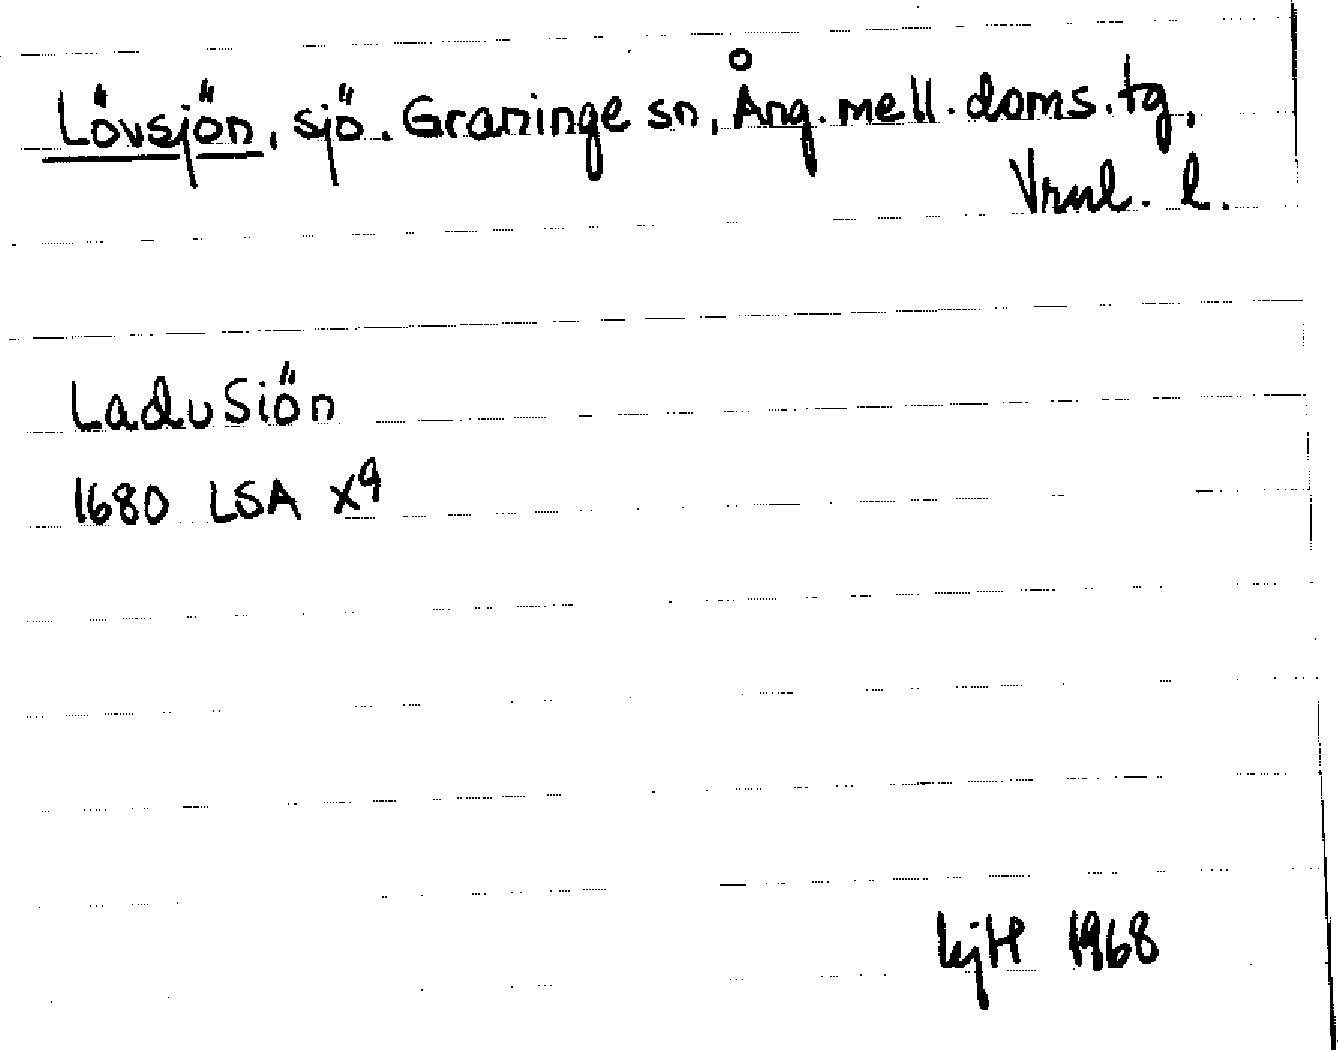 Lövsjön, sjö. Graninge sn, Ång. mell. doms. tg,
Vrnl. l.
LaduSiön
1680 LSA X9
1968